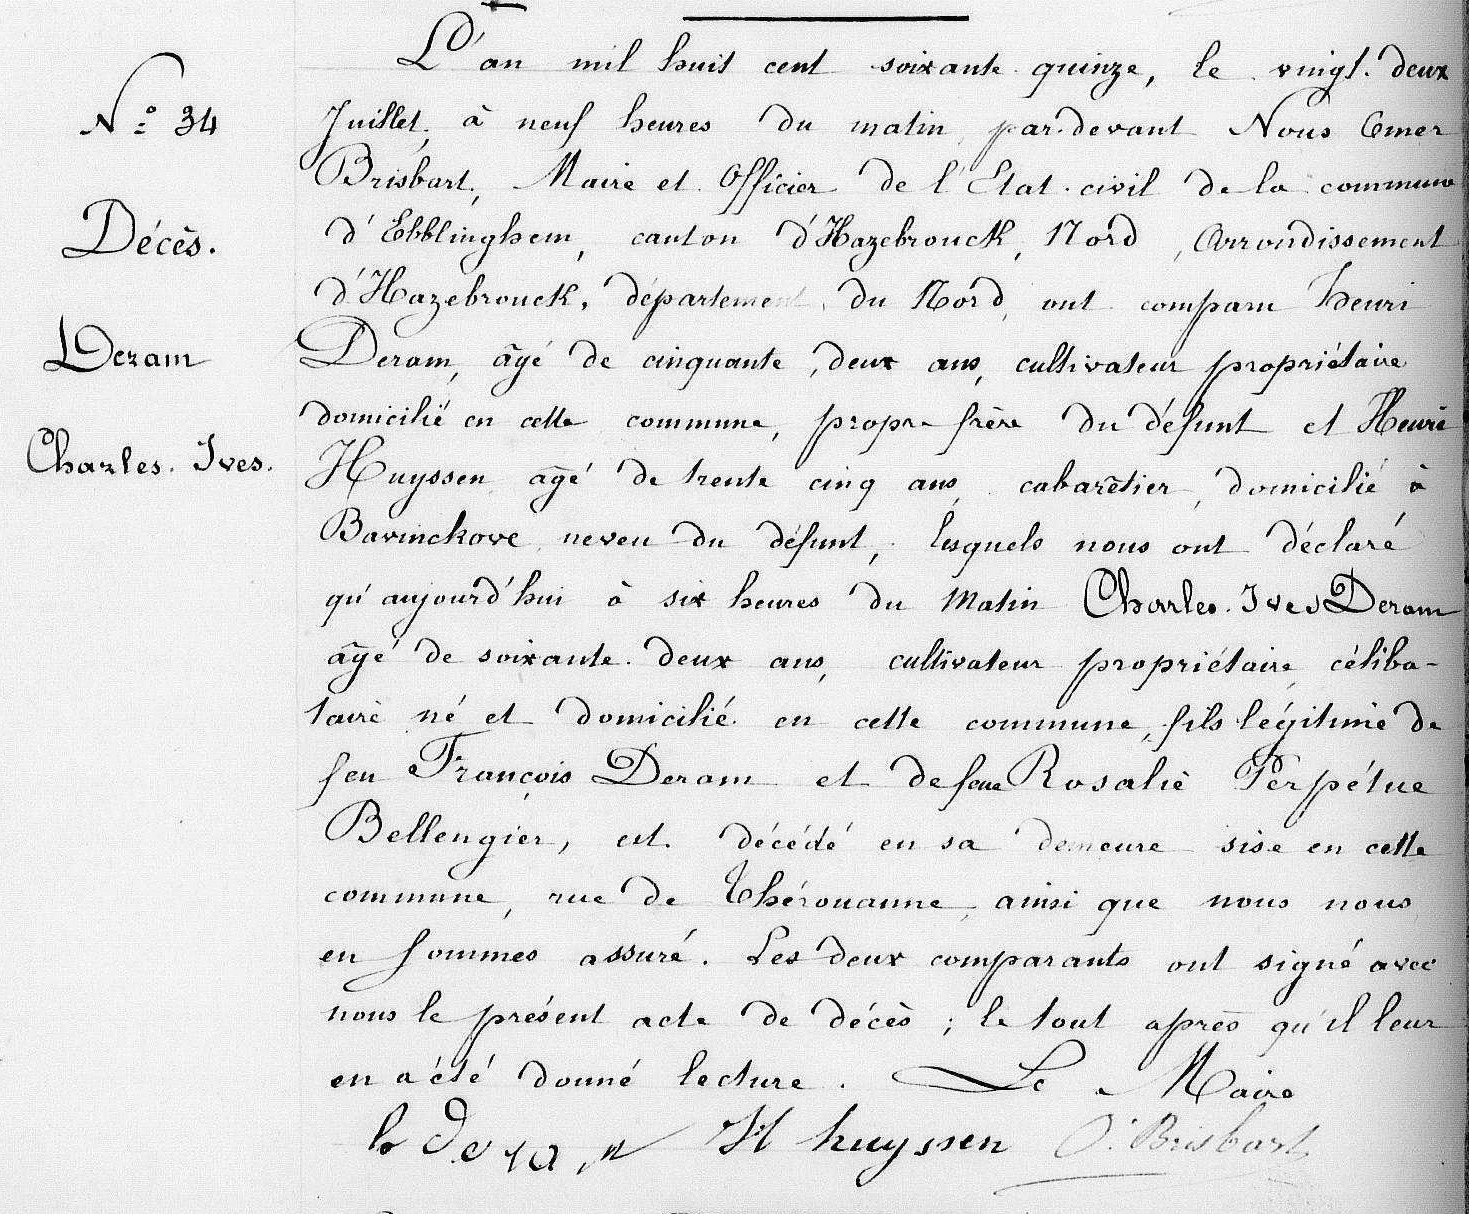 N° 34
Décès.
Deram
Charles. Ives.
L'an mil huit cent soixante quinze, le vingt. deux
Juillet, à neuf heures du matin, par. devant Nous Omer
Brisbart, Maire et Officier de l'Etat. civil de la commune
d'Ebblinghem, canton d'Hazebrouck, Nord, Arrondissement
d'Hazebrouck, département du Nord, ont comparu henri
Deram, âgé de cinquante, deux ans, cultivateur propriétaire
domicilié en cette commune, propre frère du défunt et Henri
Huyssen âgé de trente cinq ans, cabarêtier, domicilié à
Bavinckove neveu du défunt, lesquels nous ont déclaré
qu'aujourd'hui à six heures du Matin Charles. Ives Deram
âgé de soixante. deux ans, cultivateur propriétaire céliba-
taire né et domicilié en cette commune, fils légitime de
feu François Deram et de feue Rosalie Perpétue
Bellengier, est décédé en sa demeure sise en cette
commune, rue de Thérouanne, ainsi que nous nous
en sommes assuré. Les deux comparants ont signé avec
nous le présent acte de décès ; le tout après qu'il leur
en a été donné lecture. Le Maire
h Deram H huyssen O. Brisbart